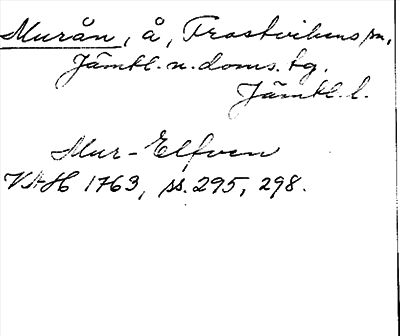 Murån, å, Frostvikens sn,
Jämtl. n. doms. tg.
Jämtl. l.
Mur-Elfven
VAH 1763, ss. 295, 298.